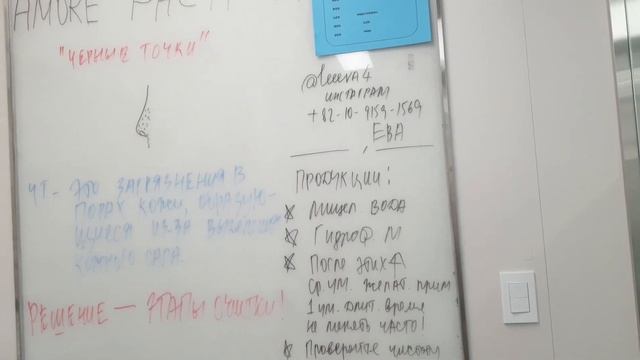 AMORE
"ЧЕРНЫЕ ТОЧКИ"
ЧТ - ЭТО ЗАГРЯЗНЕНИЯ В
ПОРАХ КОЖИ, ОБРАЗУЮ-
ЩИЕСЯ ИЗ-ЗА
КОЖНОГО САЛА.
РЕШЕНИЕ — ЭТАПЫ ОЧИТКИ!
@leeeva4
ИНСТАГРАМ
+82-10-9159-1569
ЕВА
ПРОДУКЦИИ:
Мицел ВОДА
Гидроф М
После этих
Ср. ум. желат. прим
1 ум. длит. время
не менять часто!
Проверойте